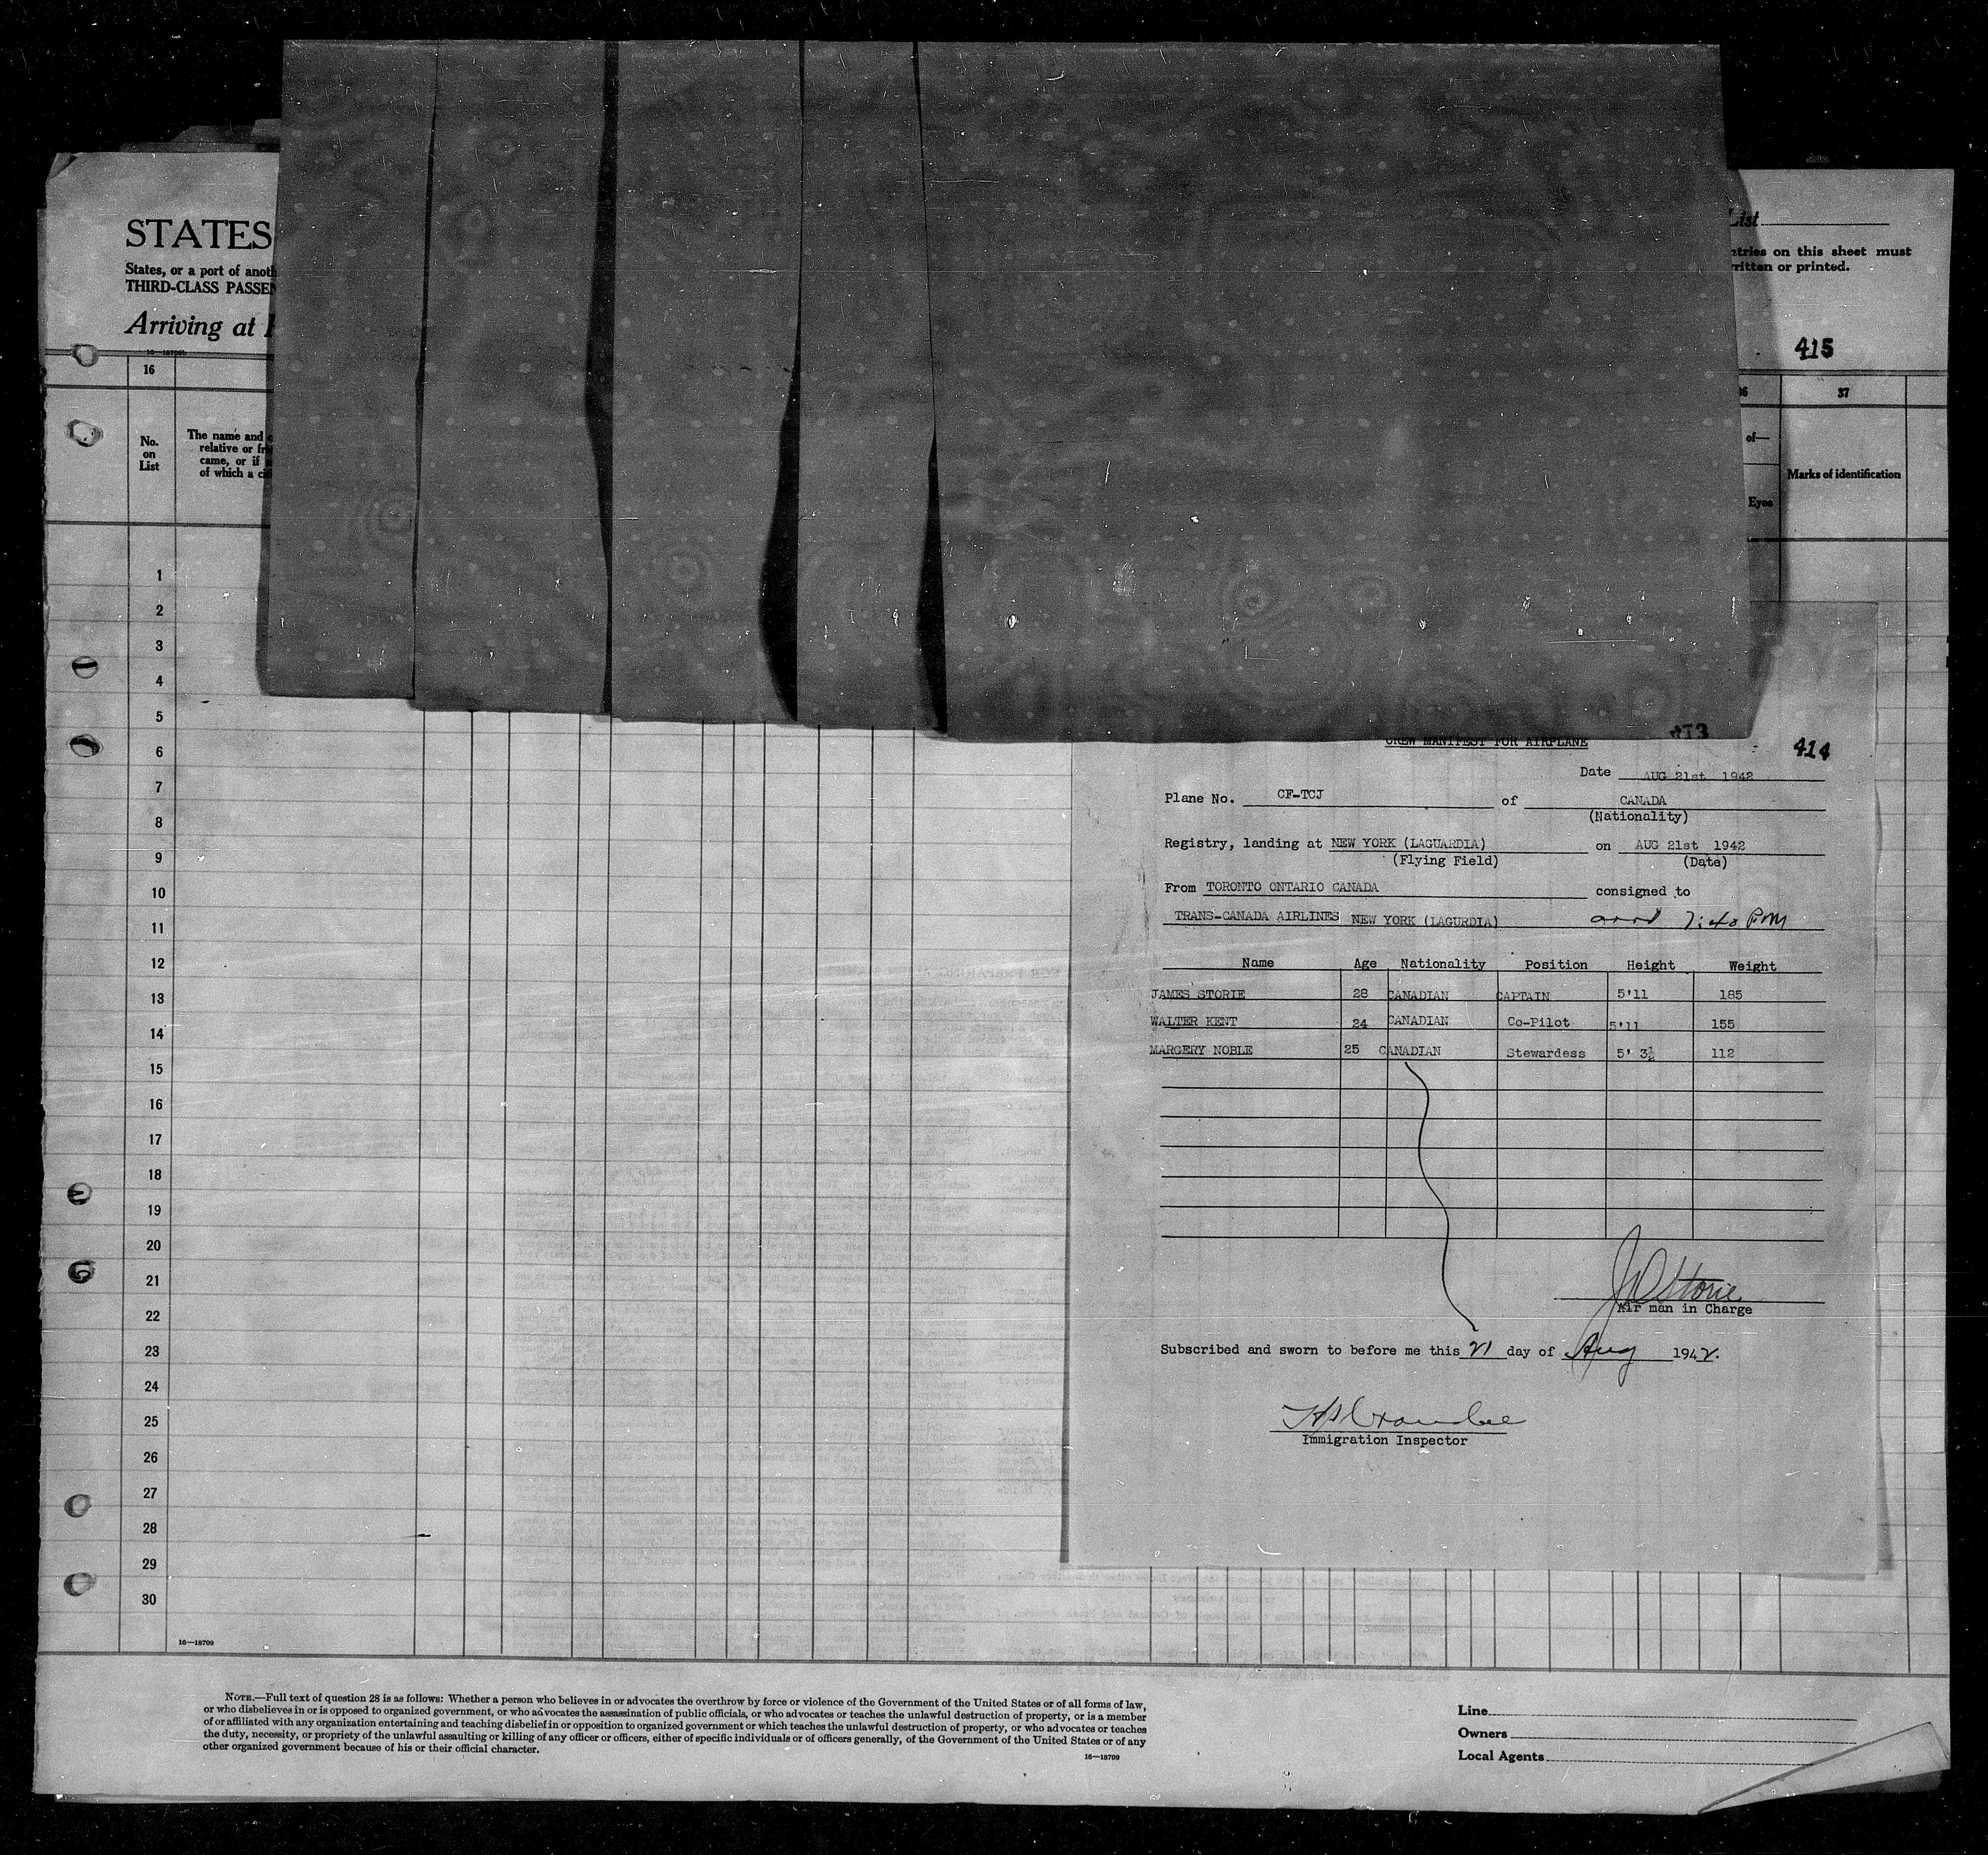 STATES
States, or a port of anoth
THIRD-CLASS PASSEN
Arriving at
16—18709b
List
ntries on this sheet must
ritten or printed.
415
16
36
37
No.
on
List
The name and
relative or fri
came, or if
of which a cit
of—
Eyes
Marks of identification
1
2
3
4
5
6
7
8
9
10
11
12
13
14
15
16
17
18
19
20
21
22
23
24
25
26
27
28
29
30
16—18709
413
CREW MANIFEST FOR AIRPLANE
414
Date AUG 21st 1942
Plane No. CF-TCJ of CANADA
(Nationality)
Registry, landing at NEW YORK (LAGUARDIA) on AUG 21st 1942
(Flying Field) (Date)
From TORONTO ONTARIO CANADA consigned to
TRANS-CANADA AIRLINES NEW YORK (LAGURDIA) 7:40 PM
Name Age Nationality Position Height Weight
JAMES STORIE 28 CANADIAN CAPTAIN 5'11 185
WALTER KENT 24 CANADIAN Co-Pilot 5'11 155
MARGERY NOBLE 25 CANADIAN Stewardess 5' 3½ 112
Storie
Air man in Charge
Subscribed and sworn to before me this 21 day of Aug 1942.
Immigration Inspector
NOTE.—Full text of question 28 is as follows: Whether a person who believes in or advocates the overthrow by force or violence of the Government of the United States or of all forms of law,
or who disbelieves in or is opposed to organized government, or who advocates the assassination of public officials, or who advocates or teaches the unlawful destruction of property, or is a member
of or affiliated with any organization entertaining and teaching disbelief in or opposition to organized government or which teaches the unlawful destruction of property, or who advocates or teaches
the duty, necessity, or propriety of the unlawful assaulting or killing of any officer or officers, either of specific individuals or of officers generally, of the Government of the United States or of any
other organized government because of his or their official character.
16—18709
Line
Owners
Local Agents